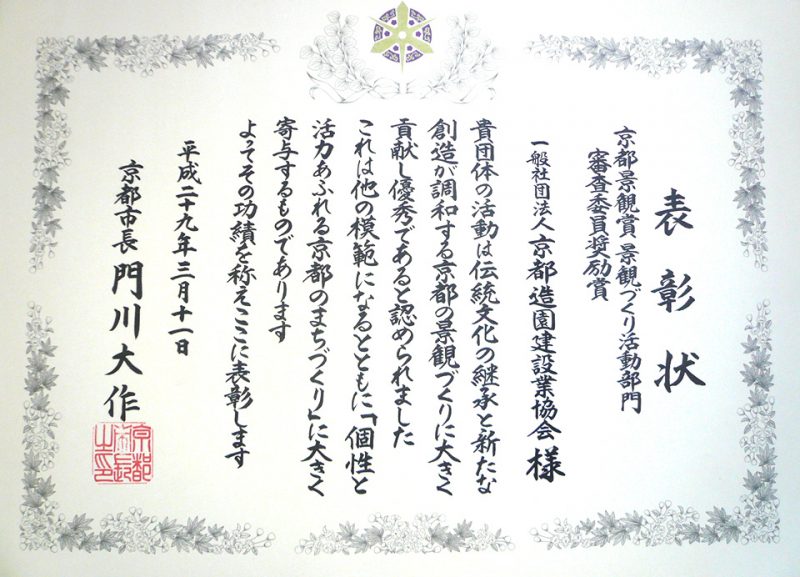 表彰状
京都景観賞 景観づくり活動部門
審査委員奨励賞
一般社団法人 京都造園建設業協会 様
貴団体の活動は伝統文化の継承と新たな
創造が調和する京都の景観づくりに大きく
貢献し優秀であると認められました
これは他の模範になるとともに「個性と
活力あふれる京都のまちづくり」に大きく
寄与するものであります
よってその功績を称えここに表彰します
平成二十九年三月十一日
京都市長 門川大作
京都市長之印